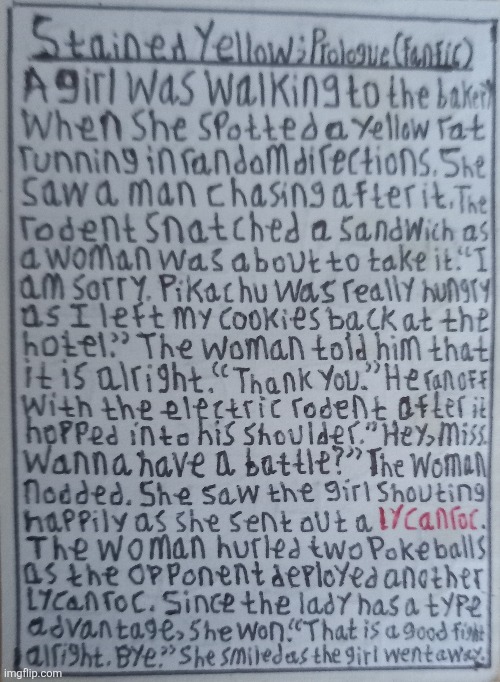 Stained Yellow; Prologue (Fanfic)
A girl was walking to the bakery
when she spotted a yellow rat
running in random directions. She
saw a man chasing after it. The
rodent snatched a sandwich as
a woman was about to take it. "I
am sorry. Pikachu was really hungry
as I left my cookies back at the
hotel." The woman told him that
it is alright. "Thank you." He ran off
with the electric rodent after it
hopped into his shoulder. "Hey, miss.
Wanna have a battle?" The woman
nodded. She saw the girl shouting
happily as she sent out a Lycanroc.
The woman hurled two Pokeballs
as the opponent deployed another
Lycanroc. Since the lady has a type
advantage, she won. "That is a good fight
alright. Bye." She smiled as the girl went away.
imgflip.com